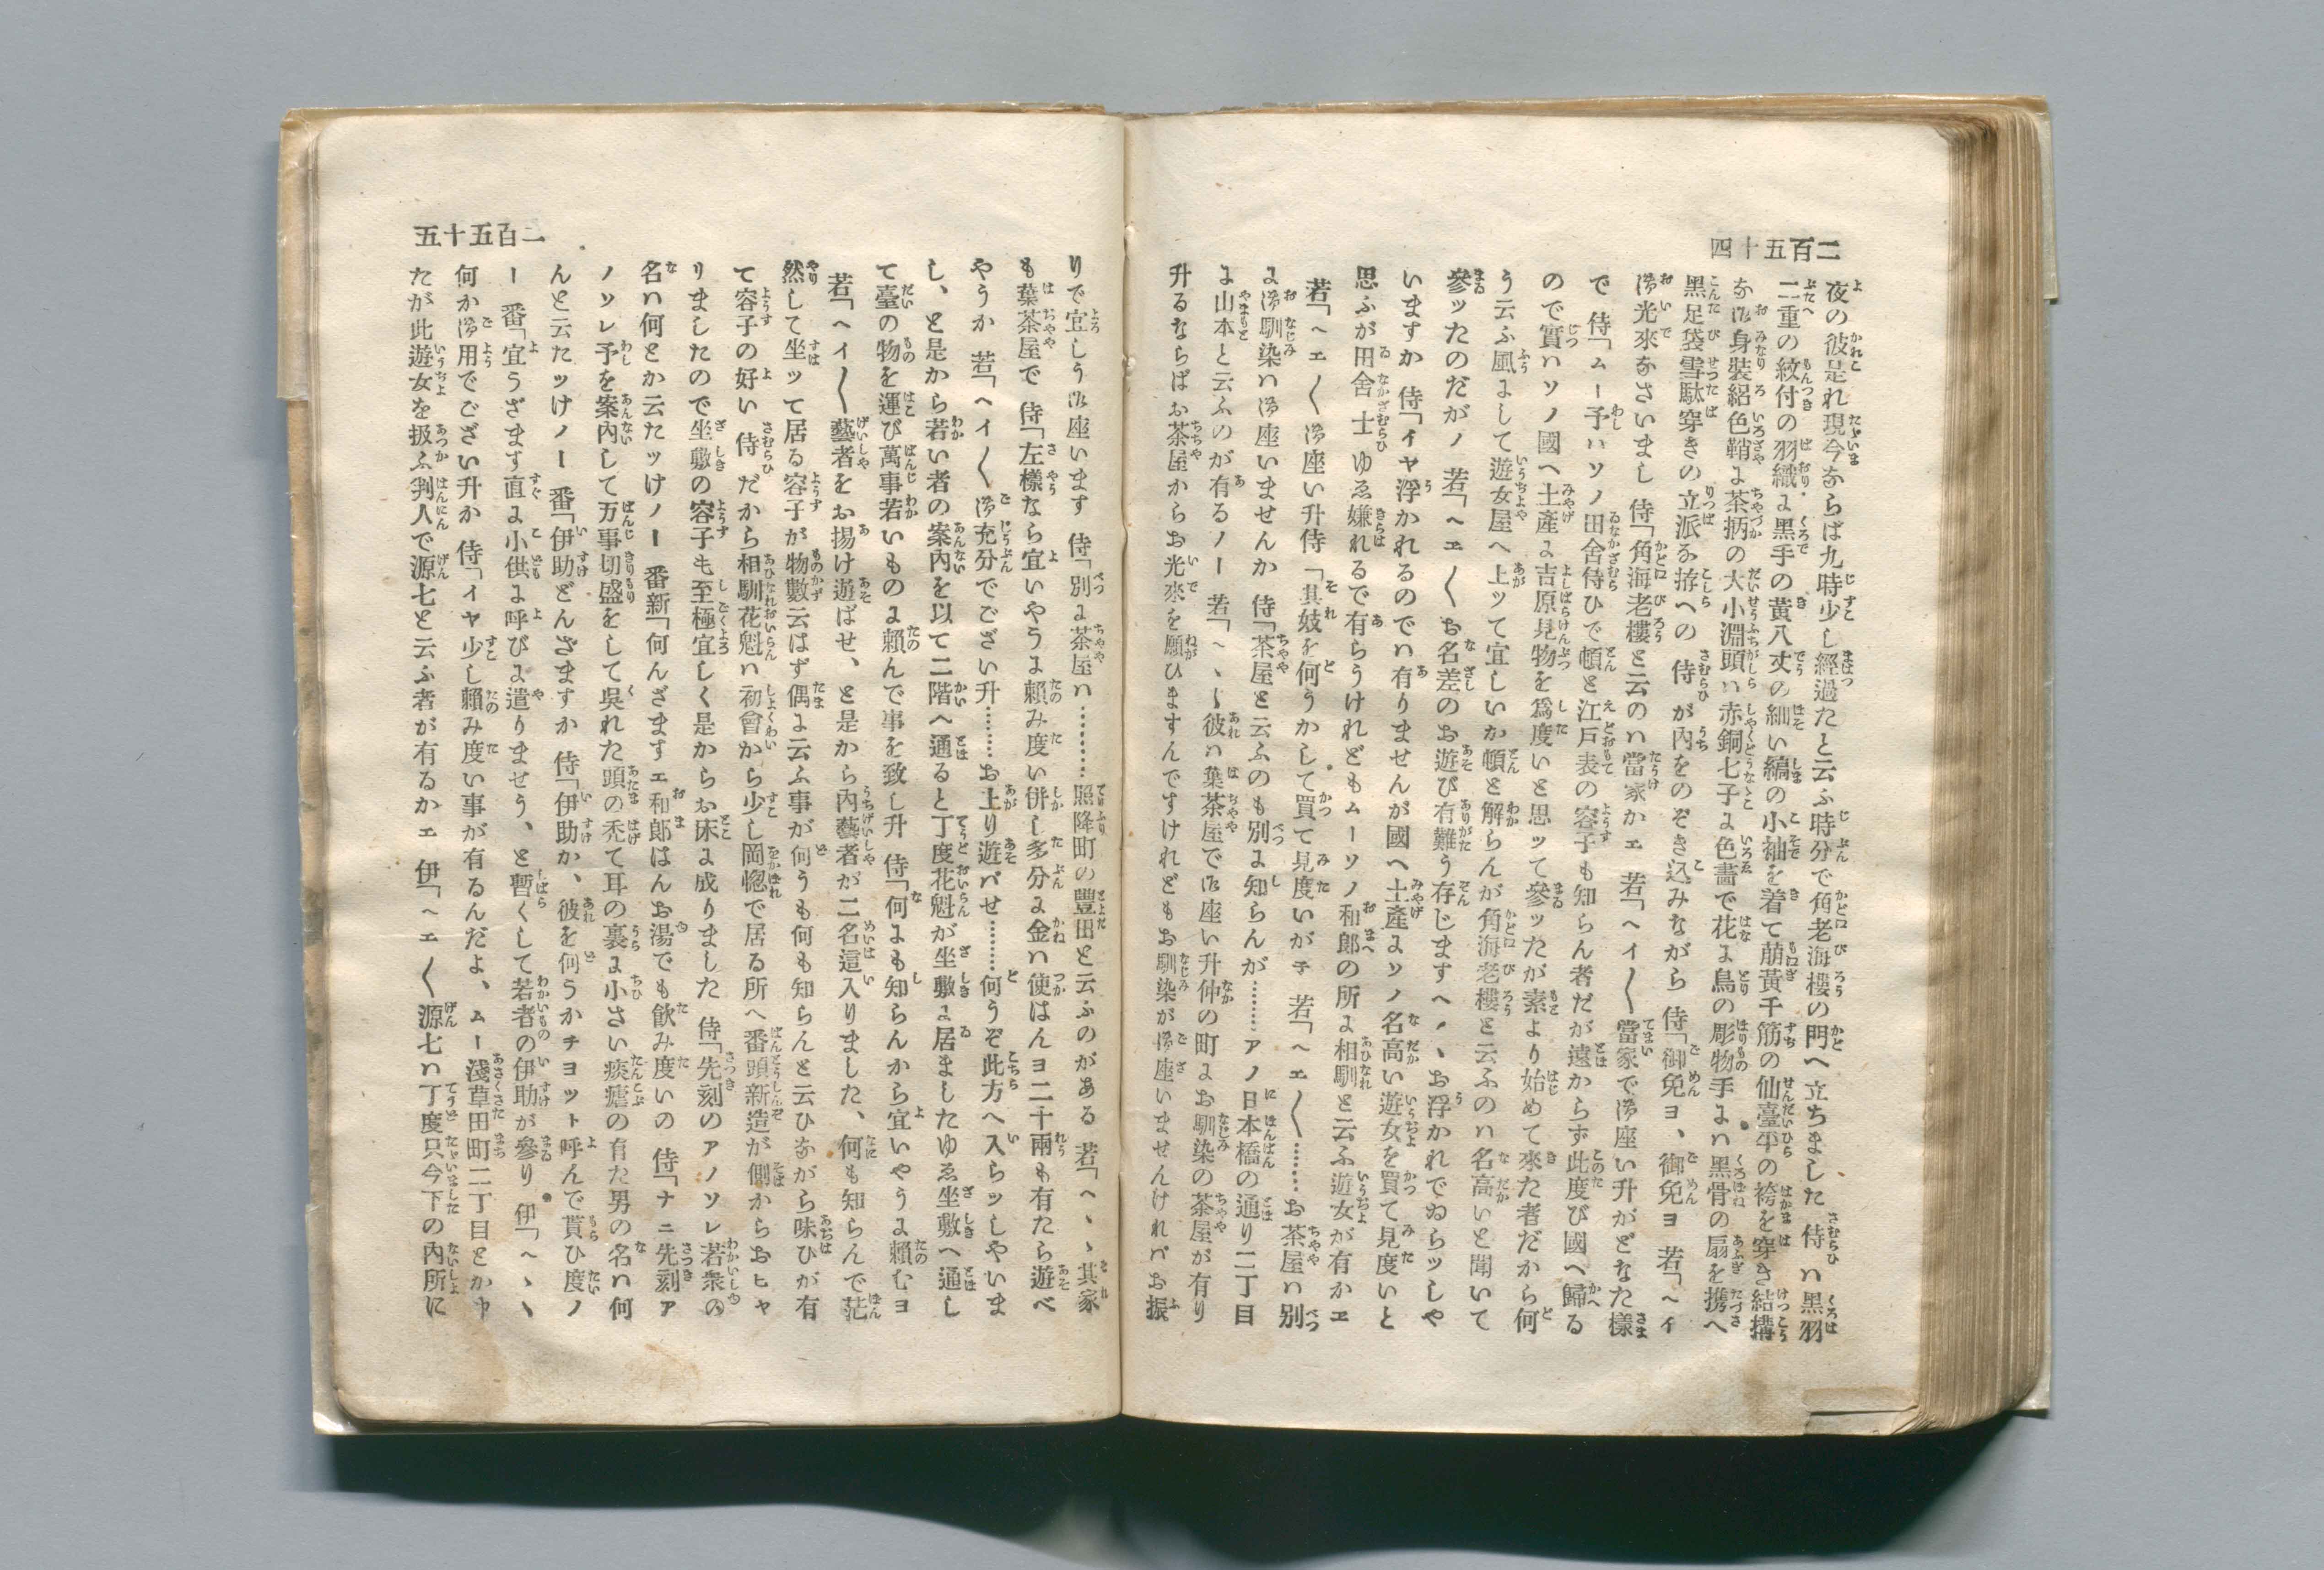 二百五十四
夜の彼是れ現今ならば九時少し經過たと云ふ時分で角老海樓の門へ立ちました 侍ハ黒羽
二重の紋付の羽織に黒手の黄八丈の細い縞の小袖を着て萠黃千筋の仙臺平の袴を穿き結搆
な御身裝絽色鞘に茶柄の大小淵頭ハ赤銅七子に色畵で花に鳥の彫物手にハ黒骨の扇を携へ
黒足袋雪駄穿きの立派な拵への 侍が内をのぞき込みながら 侍「御免ヨ、御免ヨ 若「ヘイ
御光來なさいまし 侍「角海老樓と云のハ當家かエ 若「ヘイ〳〵當家で御座い升がどなた樣
で 侍「ムー予ハソノ田舍侍ひで頓と江戸表の容子も知らん者だが遠からず此度び國へ歸る
ので實ハソノ國へ土產に吉原見物を爲度いと思ッて參ッたが素より始めて來た者だから何
う云ふ風にして遊女屋へ上ッて宜しいか頓と解らんが角海老樓と云ふのハ名高いと聞いて
參ッたのだがノ 若「ヘエ〳〵お名差のお遊び有難う存じますヘヽヽお浮かれでゐらッしや
いますか 侍「イヤ浮かれるのでハ有りませんが國へ土產にソノ名高い遊女を買て見度いと
思ふが田舍 士ゆゑ嫌れるで有らうけれどもムーソノ和郎の所に相馴と云ふ遊女が有かエ
若「ヘエ〳〵御座い升侍「其妓を何うかして買て見度いがチ 若「ヘエ〳〵……お茶屋ハ別
に御馴染ハ御座いませんか 侍「茶屋と云ふのも別に知らんが………アノ日本橋の通り二丁目
に山本と云ふのが有るノー 若「ヘヽ〳〵彼ハ葉茶屋で御座い升仲の町にお馴染の茶屋が有り
升るならばお茶屋からお光來を願ひますんですけれどもお馴染が御座いませんけれバお振
二百五十五
りで宜しう御座います 侍「別に茶屋ハ………照降町の豐田と云ふのがある 若「ヘヽ其家
も葉茶屋で 侍「左樣なら宜いやうに賴み度い併し多分に金ハ使はんヨ二千兩も有たら遊べ
やうか 若「ヘイ〳〵御充分でござい升………お上り遊バせ………何うぞ此方へ入らッしやいま
し、と是から若い者の案內を以て二階へ通ると丁度花魁が坐敷に居ましたゆゑ坐敷へ通し
て臺の物を運び萬事若いものに賴んで事を致し升 侍「何にも知らんから宜いやうに賴むヨ
若「ヘイ〳〵藝者をお揚け遊ばせ、と是から內藝者が二名這入りました、何も知らんで茫
然して坐ッて居る容子が物數云はず偶に云ふ事が何うも何も知らんと云ひながら味ひが有
て容子の好い 侍だから相馴花魁ハ初會から少し岡惚で居る所へ番頭新造が側からおヒャ
りましたので坐敷の容子も至極宜しく是からお床に成りました 侍「先刻のアノソレ若衆の
名ハ何とか云たッけノー 番新「何んざますエ和郎はんお湯でも飮み度いの 侍「ナニ先刻ア
ノソレ予を案內して万事切盛をして吳れた頭の禿て耳の裏に小さい痰瘧の有た男の名ハ何
んと云たッけノー 番「伊助どんざますか 侍「伊助か、彼を何うかチヨット呼んで貰ひ度ノ
ー 番「宜うざます直に小供に呼びに遣りませう、と暫くして若者の伊助が參り 伊「ヘヽヽ
何か御用でござい升か 侍「イヤ少し賴み度い事が有るんだよ、ムー淺草田町二丁目とかヤ
たが此遊女を扱ふ判人で源七と云ふ者が有るかエ 伊「ヘエ〳〵源七ハ丁度只今下の內所に